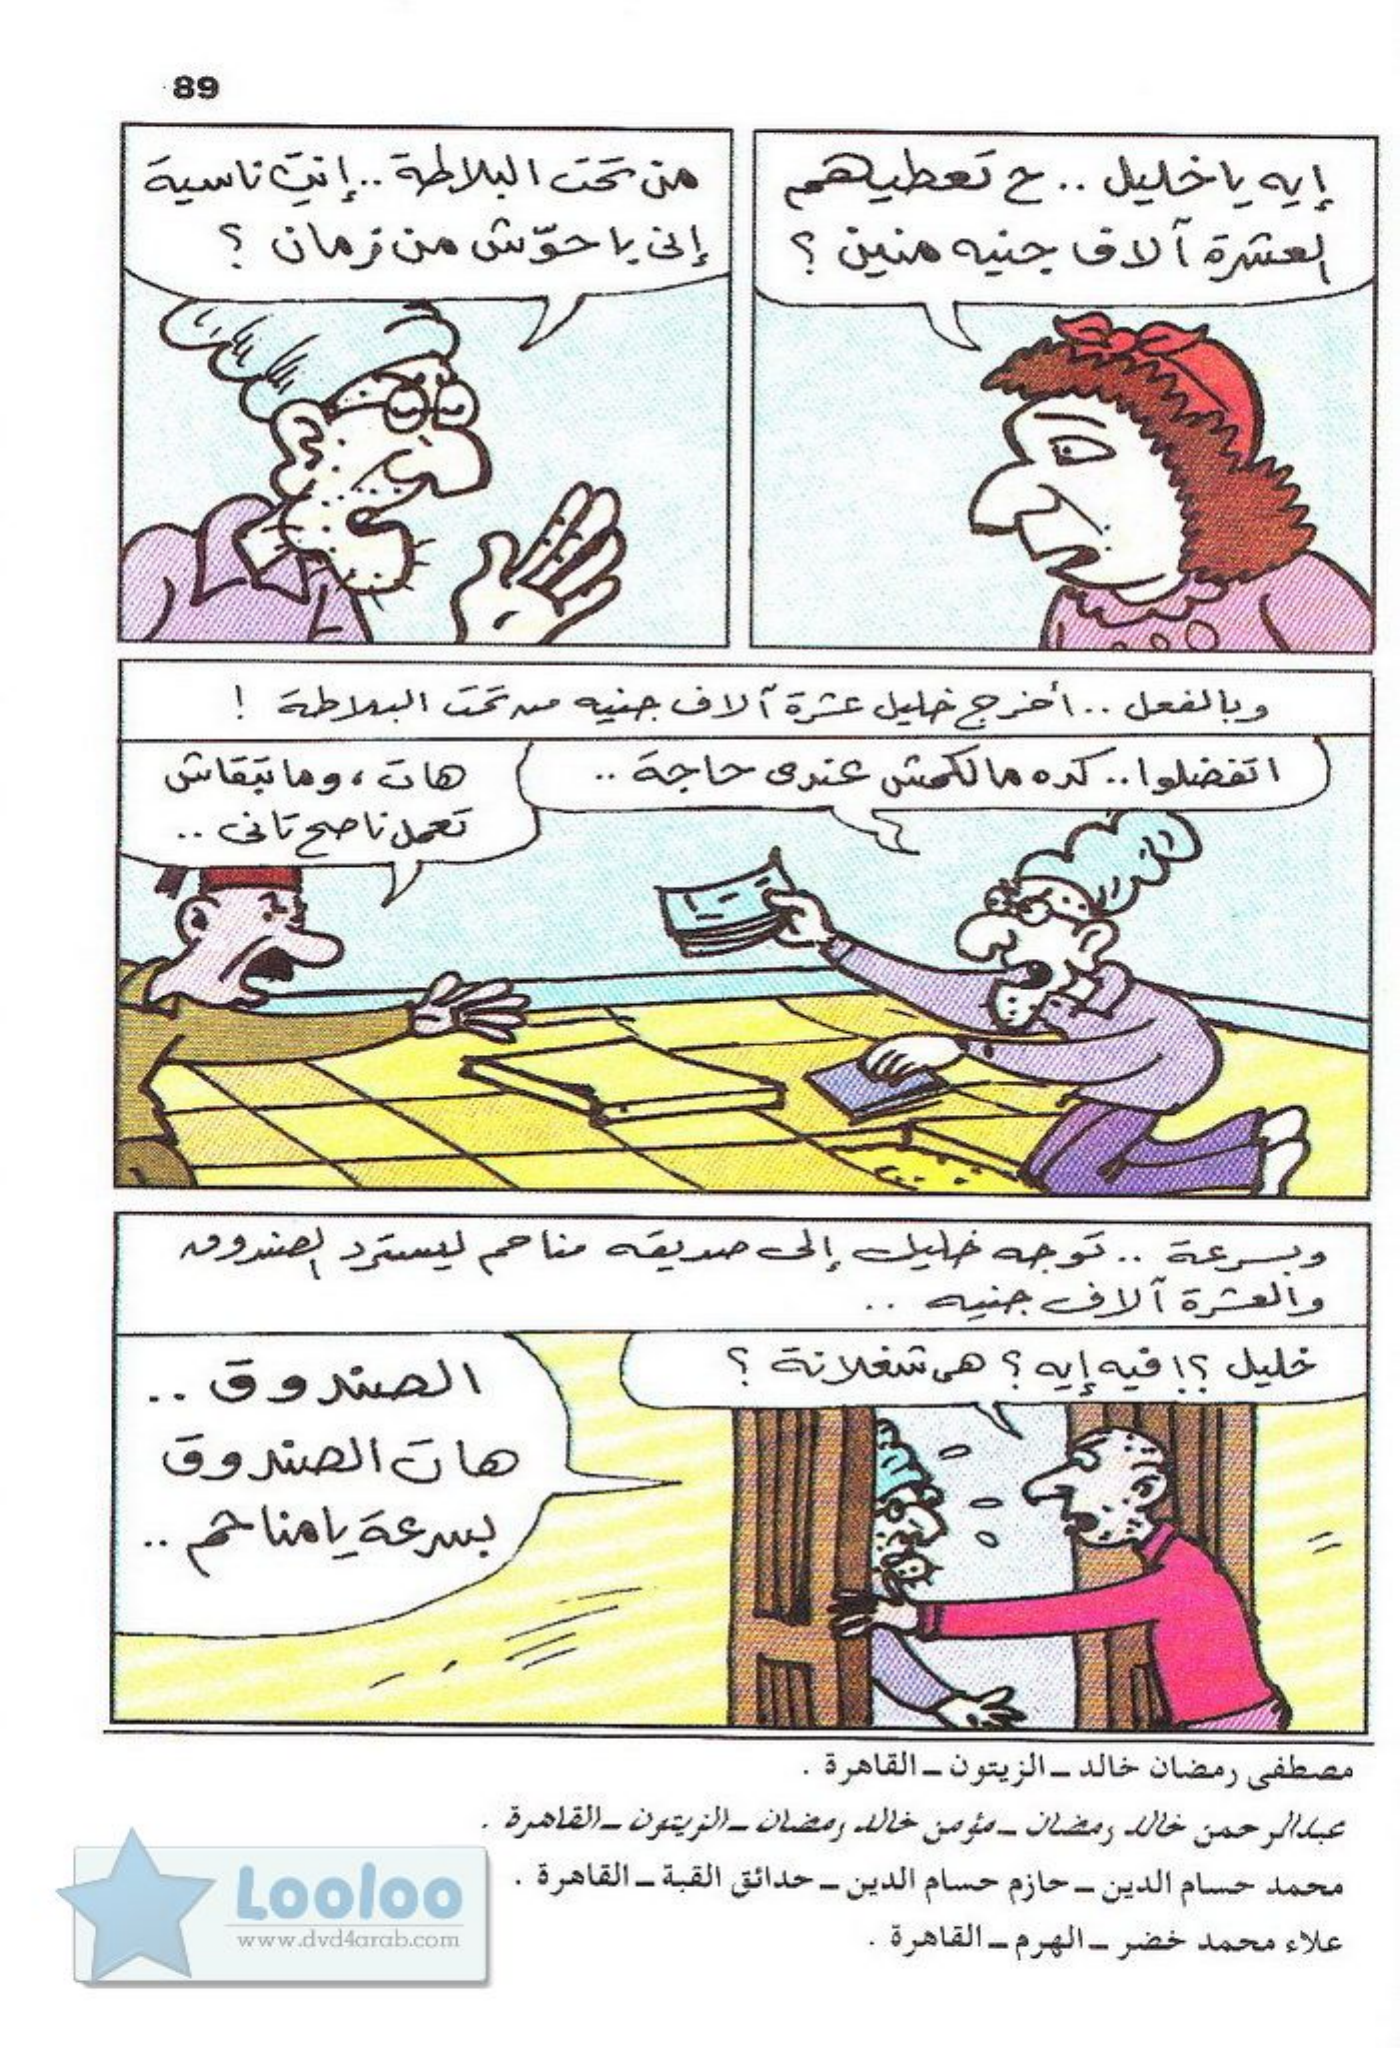 89
إيه يا خليل .. ح تعطيهم
العشرة آلاف جنيه منين ؟
من تحت البلاطة .. إنتِ ناسية
إنى باحوّش من زمان ؟
وبالفعل .. أخرج خليل عشرة آلاف جنيه من تحت البلاطة !
اتفضلوا .. كده مالكمش عندى حاجة ..
هات ، وما تبقاش
تعمل ناصح تانى ..
وبسرعة .. توجه خليل إلى صديقه مناحم ليسترد الصندوق
والعشرة آلاف جنيه ..
خليل ؟! فيه إيه ؟ هى شغلانة ؟
الصندوق ..
هات الصندوق
بسرعة يا مناحم ..
مصطفى رمضان خالد ـ الزيتون ـ القاهرة .
عبدالرحمن خالد رمضان ـ مؤمن خالد رمضان ـ الزيتون ـ القاهرة .
محمد حسام الدين ـ حازم حسام الدين ـ حدائق القبة ـ القاهرة .
علاء محمد خضر ـ الهرم ـ القاهرة .
Looloo
www.dvd4arab.com